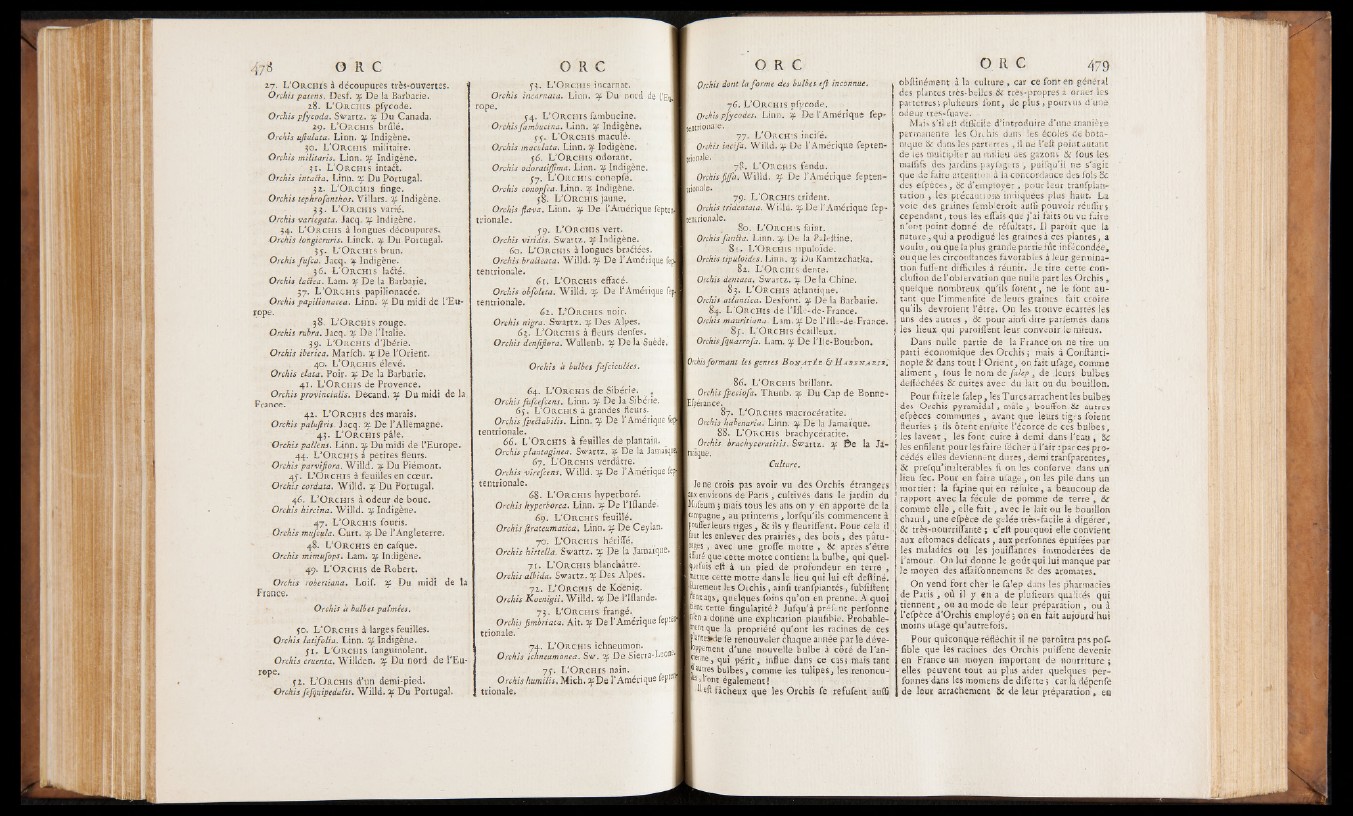 478 O R C
27. L'ORCHIS à découpures très-ouvertes.
Orchis patens. Desf. ♃ De la Barbarie.
28. L'ORCHIS pſycode.
Orchis pſycoda. Swartz. ♃ Du Canada.
29. L'ORCHIS brûlé.
Orchis uſtulata. Linn. ♃ Indigène.
30. L'ORCHIS militaire.
Orchis militaris. Linn. ♃ Indigène.
31. L'ORCHIS intact.
Orchis intacta. Linn. ♃ Du Portugal.
32. L'ORCHIS ſinge.
Orchis tephroſanthos. Villars. ♃ Indigène.
33. L'ORCHIS varié.
Orchis variegata. Jacq. ♃ Indigène.
34. L'ORCHIS à longues découpures.
Orchis longicruris. Linck. ♃ Du Portugal.
35. L'ORCHIS brun.
Orchis fuſca. Jacq. ♃ Indigène.
36. L'ORCHIS lacté.
Orchis lactea. Lam. ♃ De la Barbarie.
37. L'ORCHIS papilionacée.
Orchis papilionacea. Linn. ♃ Du midi de l'Eu-
rope.
38. L'ORCHIS rouge.
Orchis rubra. Jacq. ♃ De l'Italie.
39. L'ORCHIS d'Ibérie.
Orchis iberica. Marſch. ♃ De l'Orient.
40. L'ORCHIS élevé.
Orchis elata. Poir. ♃ De la Barbarie.
41. L'ORCHIS de Provence.
Orchis provincialis. Decand. ♃ Du midi de la
France.
42. L'ORCHIS des marais.
Orchis paluſtris. Jacq. ♃ De l'Allemagne.
43. L'ORCHIS pâle.
Orchis pallens. Linn. ♃ Du midi de l'Europe.
44. L'ORCHIS à petites fleurs.
Orchis parviflora. Willd. ♃ Du Piémont.
45. L'ORCHIS à feuilles en cœur.
Orchis cordata. Willd. ♃ Du Portugal.
46. L'ORCHIS à odeur de bouc.
Orchis hircina. Willd. ♃ Indigène.
47. L'ORCHIS ſouris.
Orchis muſcula. Curt. ♃ De l'Angleterre.
48. L'ORCHIS en caſque.
Orchis mimuſops. Lam. ♃ Indigène.
49. L'ORCHIS de Robert.
Orchis robertiana. Loiſ. ♃ Du midi de la
France.
Orchis à bulbes palmées.
50. L'ORCHIS à larges feuilles.
Orchis latifolia. Linn. ♃ Indigène.
51. L'ORCHIS ſanguinolent.
Orchis cruenta. Willden. ♃ Du nord de l'Eu-
rope.
52. L'ORCHIS d'un demi-pied.
Orchis ſeſquipedalis. Willd. ♃ Du Portugal.
O R C
53. L'ORCHIS incarnat.
Orchis incarnata. Linn. ♃ Du nord de l'Eu-
rope.
54. L'ORCHIS ſambucine.
Orchis ſambucina. Linn. ♃ Indigène.
55. L'ORCHIS maculé.
Orchis maculata. Linn. ♃ Indigène.
56. L'ORCHIS odorant.
Orchis odoratiſſima. Linn. ♃ Indigène.
57. L'ORCHIS conopſé.
Orchis conopſea. Linn. ♃ Indigène.
58. L'ORCHIS jaune.
Orchis flava. Linn. ♃ De l'Amérique ſepten-
trionale.
59. L'ORCHIS vert.
Orchis viridis. Swartz. ♃ Indigène.
60. L'ORCHIS à longues bractées.
Orchis bracteata. Willd. ♃ De l'Amérique ſep-
tentrionale.
61. L'ORCHIS effacé.
Orchis obſoleta. Willd. ♃ De l'Amérique ſep-
tentrionale.
62. L'ORCHIS noir.
Orchis nigra. Swartz. ♃ Des Alpes.
63. L'ORCHIS à fleurs denſes.
Orchis denſiflora. Wallenb. ♃ De la Suède.
Orchis à bulbes faſciculées.
64. L'ORCHIS de Sibérie.
Orchis fuſceſcens. Linn. ♃ De la Sibérie.
65. L'ORCHIS à grandes fleurs.
Orchis ſpectabilis. Linn. ♃ De l'Amérique ſep-
tentrionale.
66. L'ORCHIS à feuilles de plantain.
Orchis plantaginea. Swartz. ♃ De la Jamaïque.
67. L'ORCHIS verdâtre.
Orchis vireſcens. Willd. ♃ De l'Amérique ſep-
tentrionale.
68. L'ORCHIS hyperboré.
Orchis hyperborea. Linn. ♃ De l'Iſlande.
69. L'ORCHIS feuillé.
Orchis ſtrateumatica. Linn. ♃ De Ceylan.
70. L'ORCHIS hériſſé.
Orchis hirtella. Swartz. ♃ De la Jamaïque.
71. L'ORCHIS blanchâtre.
Orchis albida. Swartz. ♃ Des Alpes.
72. L'ORCHIS de Koenig.
Orchis Koenigii. Willd. ♃ De l'Iſlande.
73. L'ORCHIS frangé.
Orchis fimbriata. Ait. ♃ De l'Amérique ſepten-
trionale.
74. L'ORCHIS ichneumon.
Orchis ichneumonea. Sw. ♃ De Sierra-Leone.
75. L'ORCHIS nain.
Orchis humilis. Mich. ♃ De l'Amérique ſepten-
trionale.
O R C
Orchis dont la forme des bulbes eſt inconnue.
76. L'ORCHIS pſycode.
Orchis pſycodes. Linn. ♃ De l'Amérique ſep-
tentrionale.
77. L'ORCHIS inciſé.
Orchis inciſa. Willd. ♃ De l'Amérique ſepten-
trionale.
78. L'ORCHIS fendu.
Orchis fiſſa. Willd. ♃ De l'Amérique ſepten-
trionale.
79. L'ORCHIS trident.
Orchis tridentata. Willd. ♃ De l'Amérique ſep-
tentrionale.
80. L'ORCHIS ſaint.
Orchis ſancta. Linn. ♃ De la Paleſtine.
81. L'ORCHIS tipuloïde.
Orchis tipuloides. Linn. ♃ Du Kamtzchatka.
82. L'ORCHIS denté.
Orchis dentata. Swartz. ♃ De la Chine.
83. L'ORCHIS atlantique.
Orchis atlantica. Desfont. ♃ De la Barbarie.
84. L'ORCHIS de l'Iſle-de-France.
Orchis mauritiana. Lam. ♃ De l'Iſle-de-France.
85. L'ORCHIS écailleux.
Orchis ſquarroſa. Lam. ♃ De l'Ile-Bourbon.
Orchis formant les genres BONATEE & HABENARIE.
86. L'ORCHIS brillant.
Orchis ſpecioſa. Thunb. ♃ Du Cap de Bonne-
Eſpérance.
87. L'ORCHIS macrocératite.
Orchis habenaria. Linn. ♃ De la Jamaïque.
88. L'ORCHIS brachycératite.
Orchis brachyceratitis. Swartz. ♃ De la Ja-
maïque.
Culture.
Je ne crois pas avoir vu des Orchis étrangers
aux environs de Paris, cultivés dans le jardin du
Muſeum; mais tous les ans on y en apporte de la
campagne, au printems, lorſqu'ils commencent à
pouſſer leurs tiges, & ils y fleuriſſent. Pour cela il
faut les enlever des prairies, des bois, des pâtu-
rages, avec une groſſe motte, & après s'être
aſſuré que cette motte contient la bulbe, qui quel-
quefois eſt à un pied de profondeur en terre,
mettre cette motte dans le lieu qui lui eſt deſtiné.
Rarement les Orchis, ainſi tranſplantés, ſubſiſtent
trois ans, quelques ſoins qu'on en prenne. A quoi
tient cette ſingularité? Juſqu'à préſent perſonne
n'en a donné une explication plauſible. Probable-
ment que la propriété qu'ont les racines de ces
plantes de ſe renouveler chaque année par le déve-
loppement d'une nouvelle bulbe à côté de l'an-
cienne, qui périt, influe dans ce cas; mais tant
d'autres bulbes, comme les tulipes, les renoncu-
les, l'ont également!
Il eſt fâcheux que les Orchis ſe refuſent auſſi
O R C 479
obſtinément à la culture, car ce ſont en général
des plantes très-belles & très-propres à orner les
parterres; pluſieurs ſont, de plus, pourvus d'une
odeur très-ſuave.
Mais s'il eſt difficile d'introduire d'une manière
permanente les Orchis dans les écoles de bota-
nique & dans les parterres, il ne l'eſt point autant
de les multiplier au milieu des gazons & ſous les
maſſifs des jardins payſagers, puiſqu'il ne s'agit
que de faire attention à la concordance des ſols &
des eſpèces, & d'employer, pour leur tranſplan-
tation, les précautions indiquées plus haut. La
voie des graines ſembleroit auſſi pouvoir réuſſir;
cependant, tous les eſſais que j'ai faits ou vu faire
n'ont point donné de réſultats. Il paroît que la
nature, qui a prodigué les graines à ces plantes, a
voulu, ou que la plus grande partie fût infécondée,
ou que les circonſtances favorables à leur germina-
tion fuſſent difficiles à réunir. Je tire cette con-
cluſion de l'obſervation que nulle part les Orchis,
quelque nombreux qu'ils ſoient, ne le ſont au-
tant que l'immenſité de leurs graines fait croire
qu'ils devroient l'être. On les trouve écartés les
uns des autres, & pour ainſi dire parſemés dans
les lieux qui paroiſſent leur convenir le mieux.
Dans nulle partie de la France on ne tire un
parti économique des Orchis; mais à Conſtanti-
nople & dans tout l'Orient, on fait uſage, comme
aliment, ſous le nom de ſalep, de leurs bulbes
deſſéchées & cuites avec du lait ou du bouillon.
Pour faire le ſalep, les Turcs arrachent les bulbes
des Orchis pyramidal, mâle, bouffon & autres
eſpèces communes, avant que leurs tiges ſoient
fleuries; ils ôtent enſuite l'écorce de ces bulbes,
les lavent, les font cuire à demi dans l'eau, &
les enfilent pour les faire ſécher à l'air: par ces pro-
cédés elles deviennent dures, demi-tranſparentes,
& preſqu'inaltérables ſi on les conſerve dans un
lieu ſec. Pour en faire uſage, on les pile dans un
mortier: la farine qui en réſulte, a beaucoup de
rapport avec la fécule de pomme de terre, &
comme elle, elle fait, avec le lait ou le bouillon
chaud, une eſpèce de gelée très-facile à digérer,
& très-nourriſſante; c'eſt pourquoi elle convient
aux eſtomacs délicats, aux perſonnes épuiſées par
les maladies ou les jouiſſances immodérées de
l'amour. On lui donne le goût qui lui manque par
le moyen des aſſaiſonnemens & des aromates.
On vend fort cher le ſalep dans les pharmacies
de Paris, où il y en a de pluſieurs qualités qui
tiennent, ou au mode de leur préparation, ou à
l'eſpèce d'Orchis employé; on en fait aujourd'hui
moins uſage qu'autrefois.
Pour quiconque réfléchit il ne paroîtra pas poſ-
ſible que les racines des Orchis puiſſent devenir
en France un moyen important de nourriture;
elles peuvent tout au plus aider quelques per-
ſonnes dans les momens de diſette; car la dépenſe
de leur arrachement & de leur préparation, en